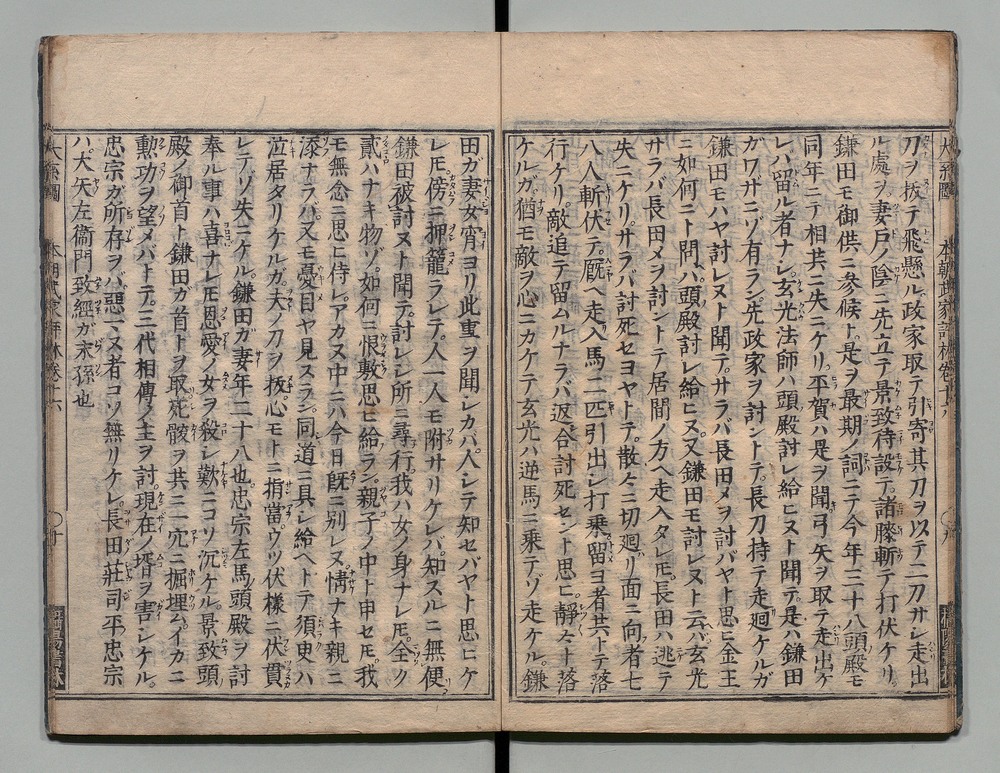 刀ヲ抜テ飛懸ル政家取テ引寄其刀ヲ以テ二刀サシ走出
ル處ヲ妻戸ノ陰ニ先立テ景致待設テ諸膝斬テ打伏ケリ
鎌田モ御供ニ参候ト是ヲ最期ノ詞ニテ今年三十八頭殿モ
同年ニテ相共ニ失ニケリ平賀ハ是ヲ聞弓矢ヲ取テ走出ケ
レハ留ル者ナシ玄光法師ハ頭殿討レ給ヒヌト聞テ是ハ鎌田
ガワザニゾ有ラン先政家ヲ討ントテ長刀持テ走廻ケルガ
鎌田モハヤ討レヌト聞テサラバ長田メヲ討バヤト思ヒ金王
ニ如何ニト問ハ頭殿討レ給ヒヌ又鎌田モ討レヌト云ハ玄光
サラバ長田メヲ討ントテ居間ノ方ヘ走入タレ𪜈長田ハ逃テ
失ニケリサラバ討死セヨヤトテ散々ニ切廻リ面ニ向者七
八人斬伏テ厩ヘ走入馬二匹引出シ打乗留ヨ者共トテ落
行ケリ敵追テ留ムルナラバ返合討死セント思ヒ静々ト落
ケルガ猶モ敵ヲ心ニカケテ玄光ハ逆馬ニ乗テゾ走ケル鎌
田ガ妻女宵ヨリ此事ヲ聞シカバ人シテ知セバヤト思ヒケ
レ𪜈傍ニ押籠ラレテ人一人モ附サリケレバ知スルニ無便
鎌田被討ヌト聞テ討レシ所ニ尋行我ハ女ノ身ナレ𪜈全ク
貳ハナキ物ゾ如何ニ恨敷思ヒ給ラン親子ノ中ト申セ𪜈我
モ無念ニ思ヒ侍レアカヌ中ニハ今日既ニ別レヌ情ナキ親ニ
添ナラバ又モ憂目ヤ見スラン同道ニ具シ給ヘトテ須臾ハ
泣居タリケルガ夫ノ刀ヲ抜心モトニ指當ウツ伏様ニ伏貫
レテゾ失ニケル鎌田ガ妻年二十八也忠宗左馬頭殿ヲ討
奉ル事ハ喜ナレ𪜈恩愛ノ女ヲ殺シ歎ニコソ沉ケル景致頭
殿ノ御首ト鎌田ガ首トヲ取死骸ヲ共ニ一穴ニ掘埋ムイカニ
勲功ヲ望メバトテ三代相傳ノ主ヲ討現在ノ壻ヲ害シケル
忠宗ガ所存ヲバ惡マヌ者コソ無リケレ長田莊司平忠宗
ハ大矢左衞門致經ガ末孫也